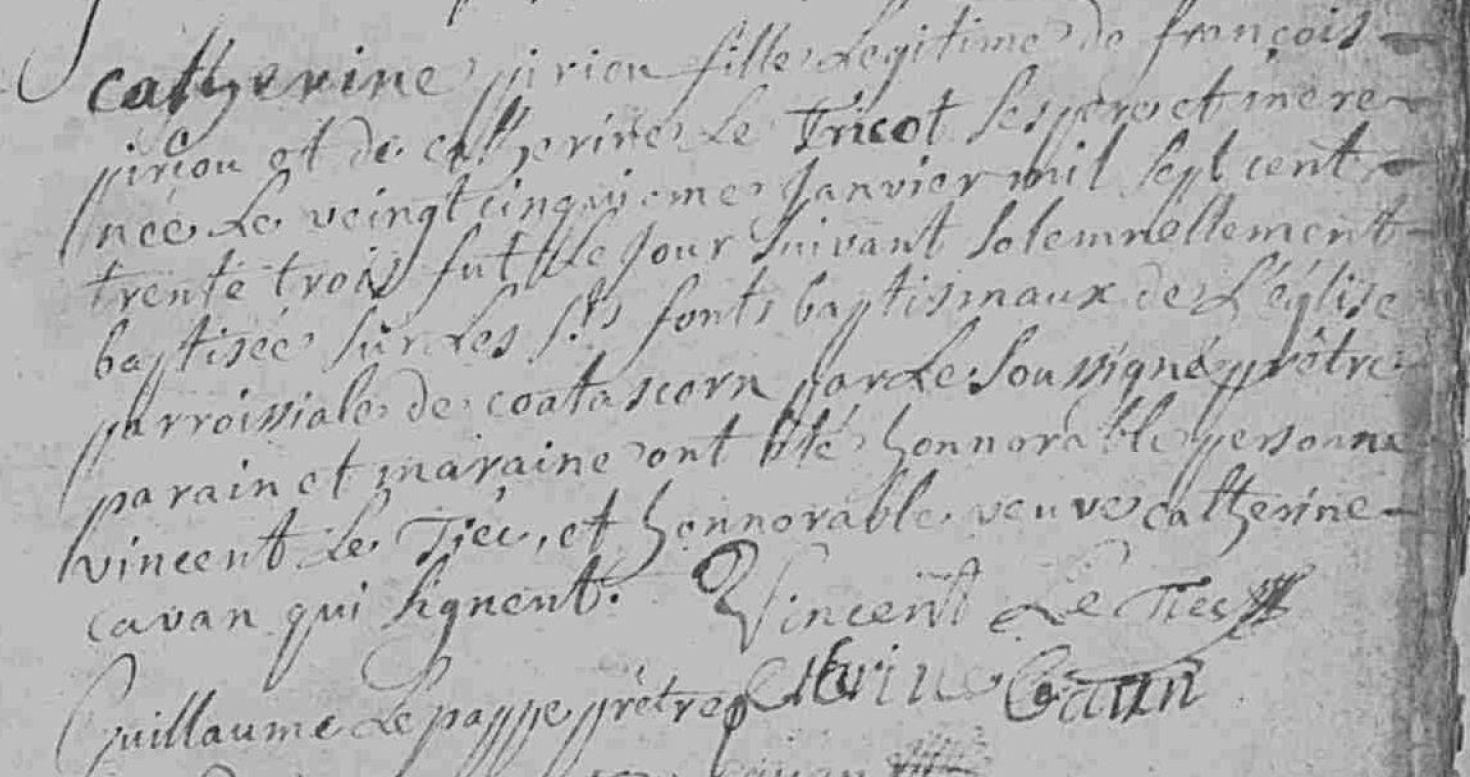 catherine piriou fille Legitime de françois
piriou et de catherine Le Tricot ses pere et mere
née Le veingt cinquieme janvier mil sept cent
trente trois fut le jour suivant solemnellement
baptisée sur Les Sts fonts baptismaux de L'église
parroissiale de coatascorn par Le soussigné prêtre
parain et maraine ont été honnorable personne
vincent Le Tiec, et honnorable veuve catherine
cavan qui signent.
Vincent Le Tiec
Guillaume Le pappe prêtre
Cavan